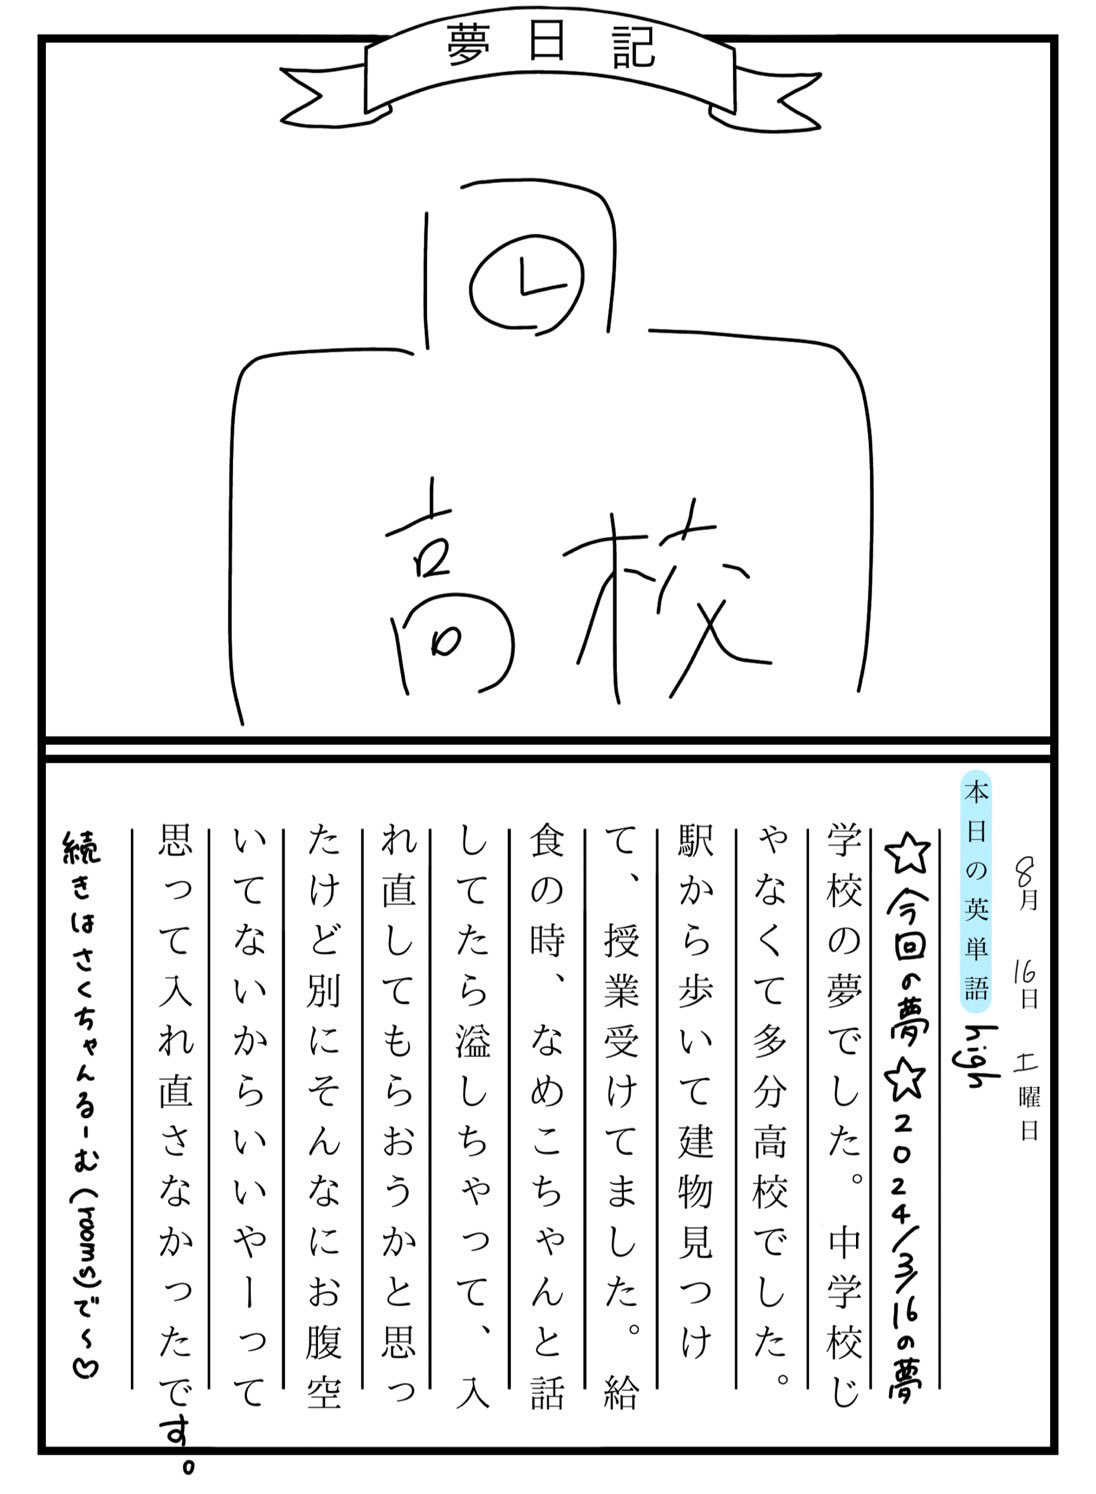 夢日記
高校
8月 16日 土曜日
本日の英単語 high
☆今回の夢☆2024/3/16の夢
学校の夢でした。中学校じ
ゃなくて多分高校でした。
駅から歩いて建物見つけ
て、授業受けてました。給
食の時、なめこちゃんと話
してたら溢しちゃって、入
れ直してもらおうかと思っ
たけど別にそんなにお腹空
いてないからいいやーって
思って入れ直さなかったです。
続きはさくちゃんるーむ(rooms)で〜♡